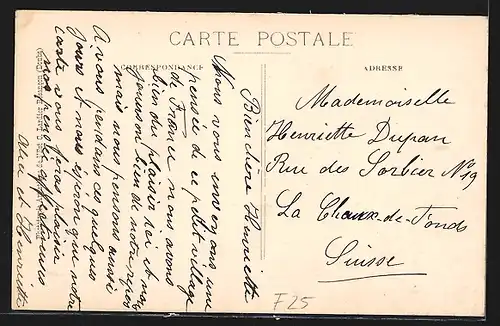 CARTE POSTALE
CORRESPONDANCE
ADRESSE
Bien chère Henriette
Nous vous envoyons une
pensée de ce petit village
de France nous avons
bien du plaisir ici et nous
jouisson bien de notre repos
mais nous pensons aussi
A vous pendans ces quelques
jours et nous esperon que notre
carte vous feras plaisir
nos pensées affectueuses
Alice et Henriette
Mademoiselle
Henriette Dupan
Rue des Sorbier N° 19
La Chaux-de-Fonds
Suisse
F25